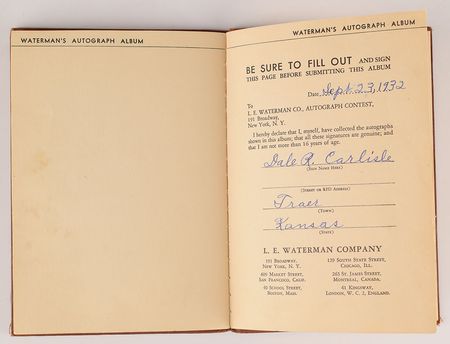 WATERMAN'S AUTOGRAPH ALBUM
WATERMAN'S AUTOGRAPH ALBUM
BE SURE TO FILL OUT AND SIGN
THIS PAGE BEFORE SUBMITTING THIS ALBUM
Date Sept. 23, 1932
To
L. E. WATERMAN CO., AUTOGRAPH CONTEST,
191 Broadway,
New York, N. Y.
I hereby declare that I, myself, have collected the autographs
shown in this album; that all these signatures are genuine; and
that I am not more than 16 years of age.
Dale R. Carlisle
(SIGN NAME HERE)
(STREET OR RFD ADDRESS)
Traer
(TOWN)
Kansas
(STATE)
L. E. WATERMAN COMPANY
191 BROADWAY, 129 SOUTH STATE STREET,
NEW YORK, N. Y. CHICAGO, ILL.
609 MARKET STREET, 263 ST. JAMES STREET,
SAN FRANCISCO, CALIF. MONTREAL, CANADA.
40 SCHOOL STREET, 41 KINGSWAY,
BOSTON, MASS. LONDON, W. C. 2, ENGLAND.